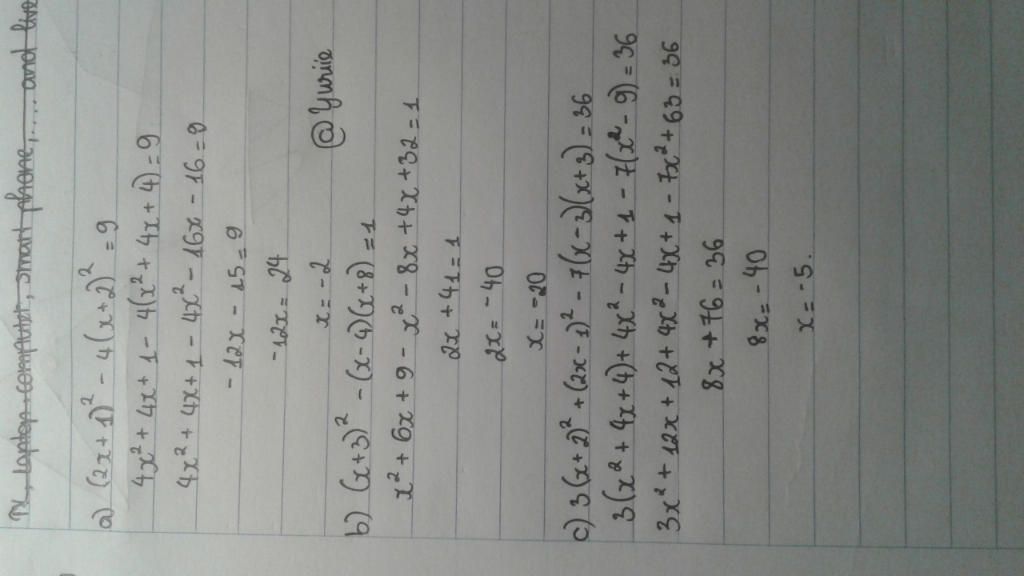 TV, laptop computer, smart phone, .... and live
a) (2x+1)² - 4(x+2)² = 9
4x² + 4x + 1 - 4(x² + 4x + 4) = 9
4x² + 4x + 1 - 4x² - 16x - 16 = 9
-12x - 15 = 9
-12x = 24
x = -2
@Yuriie
b) (x+3)² - (x-4)(x+8) = 1
x² + 6x + 9 - x² - 8x + 4x + 32 = 1
2x + 41 = 1
2x = -40
x = -20
c) 3(x+2)² + (2x-1)² - 7(x-3)(x+3) = 36
3(x² + 4x + 4) + 4x² - 4x + 1 - 7(x² - 9) = 36
3x² + 12x + 12 + 4x² - 4x + 1 - 7x² + 63 = 36
8x + 76 = 36
8x = -40
x = -5.